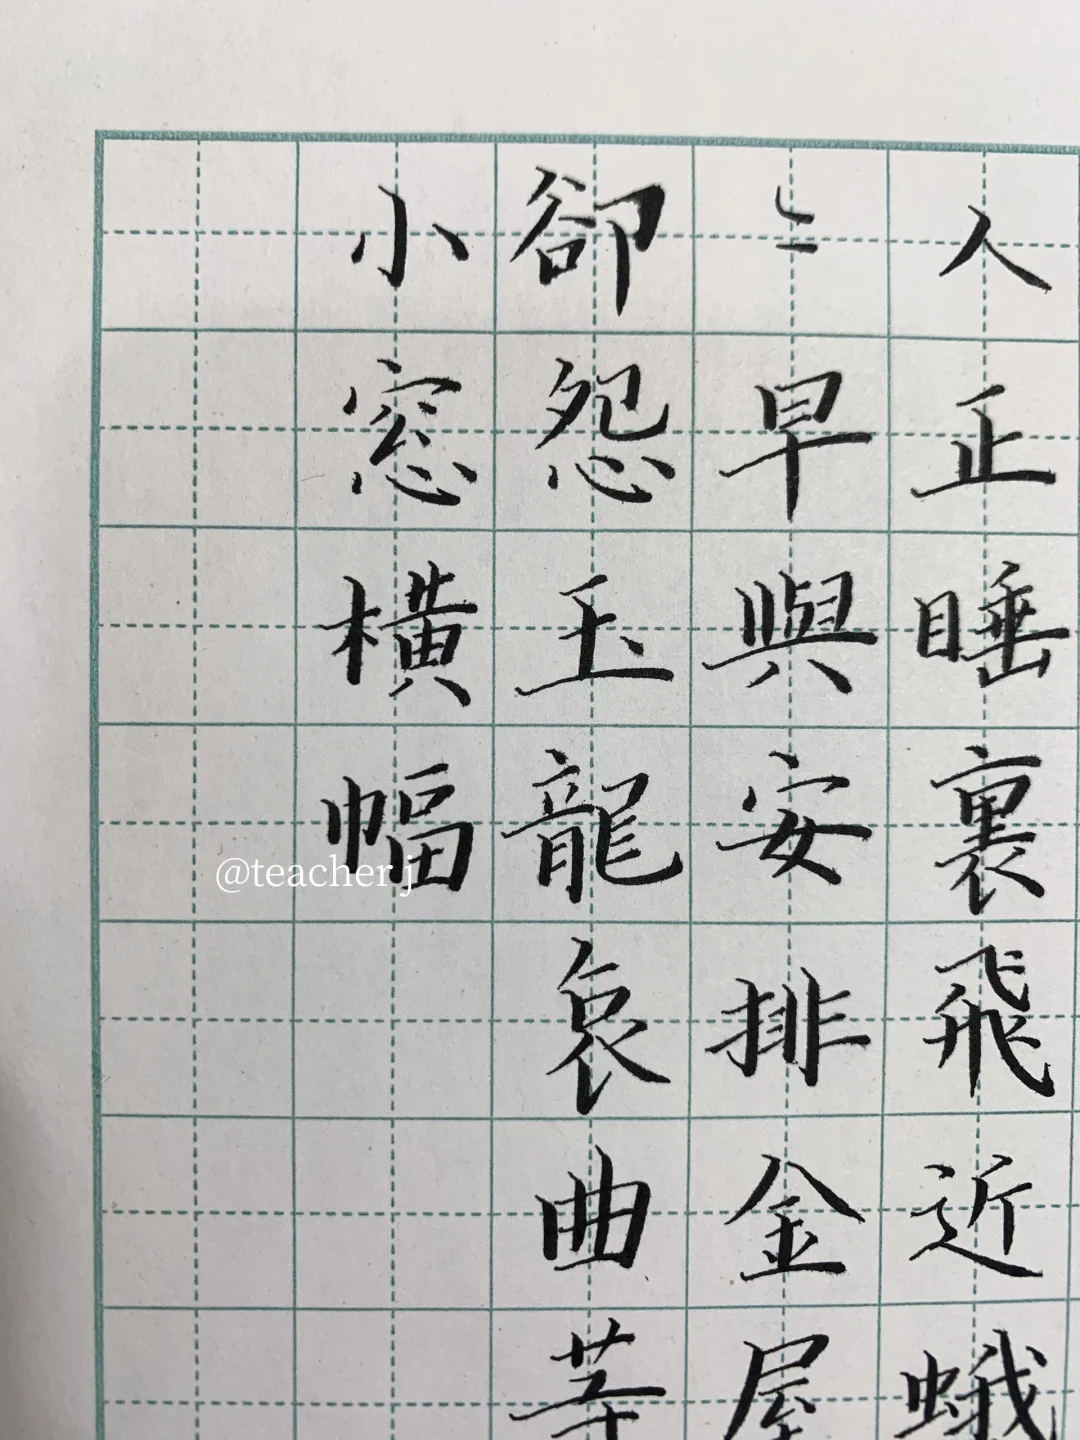 人正睡裏飛近蛾
〻早與安排金屋
卻怨玉龍哀曲䓁
小窓橫幅
@teacher j